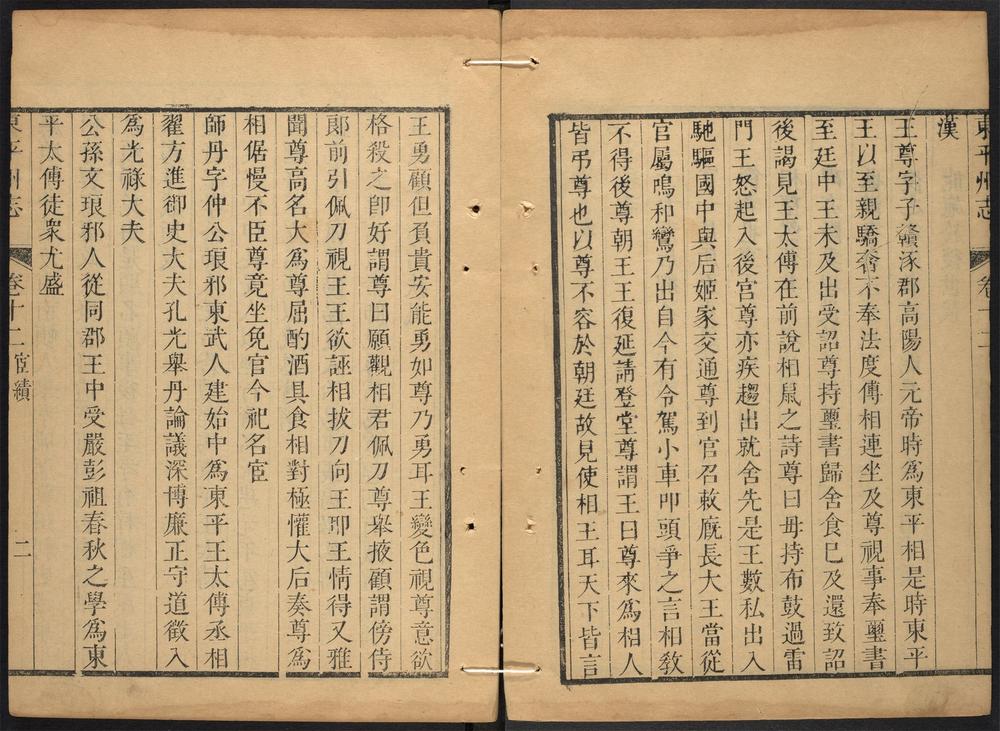 東平州志
卷十二
漢
王尊字子贛涿郡高陽人元帝時爲東平相是時東平
王以至親驕奢不奉法度傅相連坐及尊視事奉璽書
至廷中王未及出受詔尊持璽書歸舍食已及還致詔
後謁見王太傅在前說相鼠之詩尊曰毋持布鼓過雷
門王怒起入後宮尊亦疾趨出就舍先是王數私出入
馳驅國中與后姬家交通尊到官召敕廐長大王當從
官屬鳴和鸞乃出自今有令駕小車叩頭爭之言相敎
不得後尊朝王王復延請登堂尊謂王曰尊來爲相人
皆弔尊也以尊不容於朝廷故見使相王耳天下皆言
王勇顧但負貴安能勇如尊乃勇耳王變色視尊意欲
格殺之卽好謂尊曰願觀相君佩刀尊舉掖顧謂傍侍
郞前引佩刀視王王欲誣相拔刀向王耶王情得又雅
聞尊高名大爲尊屈酌酒具食相對極懽大后奏尊爲
相倨慢不臣尊竟坐免官今祀名宦
師丹字仲公琅邪東武人建始中爲東平王太傅丞相
翟方進御史大夫孔光舉丹論議深博廉正守道徵入
爲光祿大夫
公孫文琅邪人從同郡王中受嚴彭祖春秋之學爲東
平太傅徒衆尤盛
東平州志
卷十二宦績
二